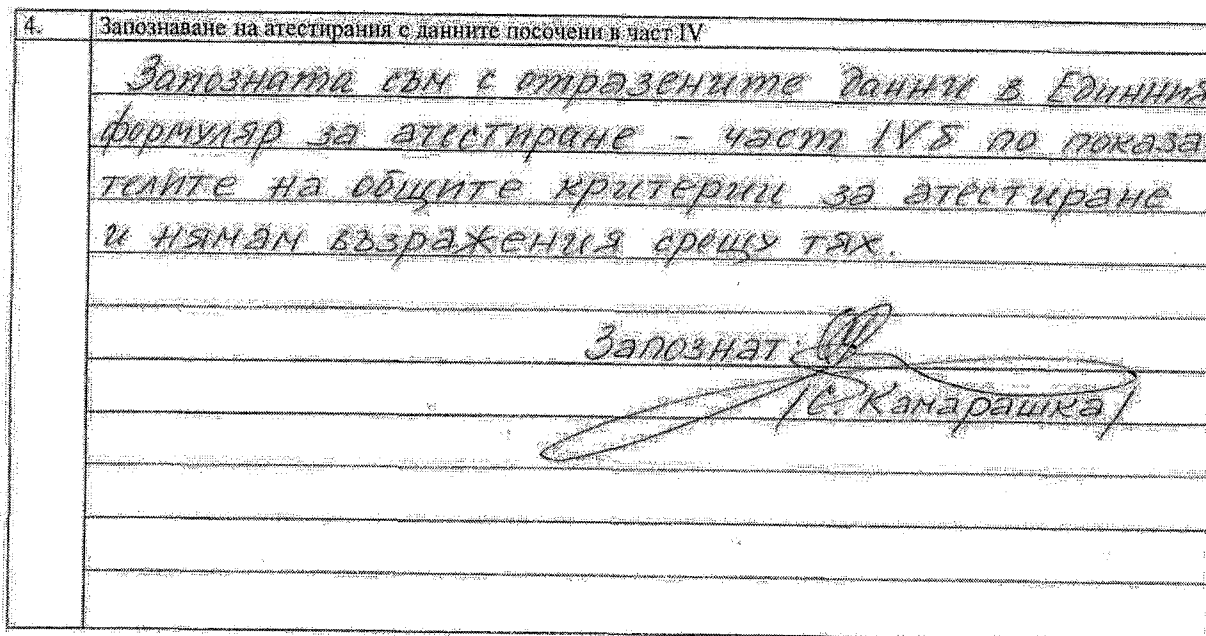 4. Запознаване на атестирания с данните посочени в част IV
Запозната съм с отразените данни в Единния
формуляр за атестиране - част IV Б по показа
телите на общите критерии за атестиране
и нямам възражения срещу тях.
Запознат:
/С. Камарашка/